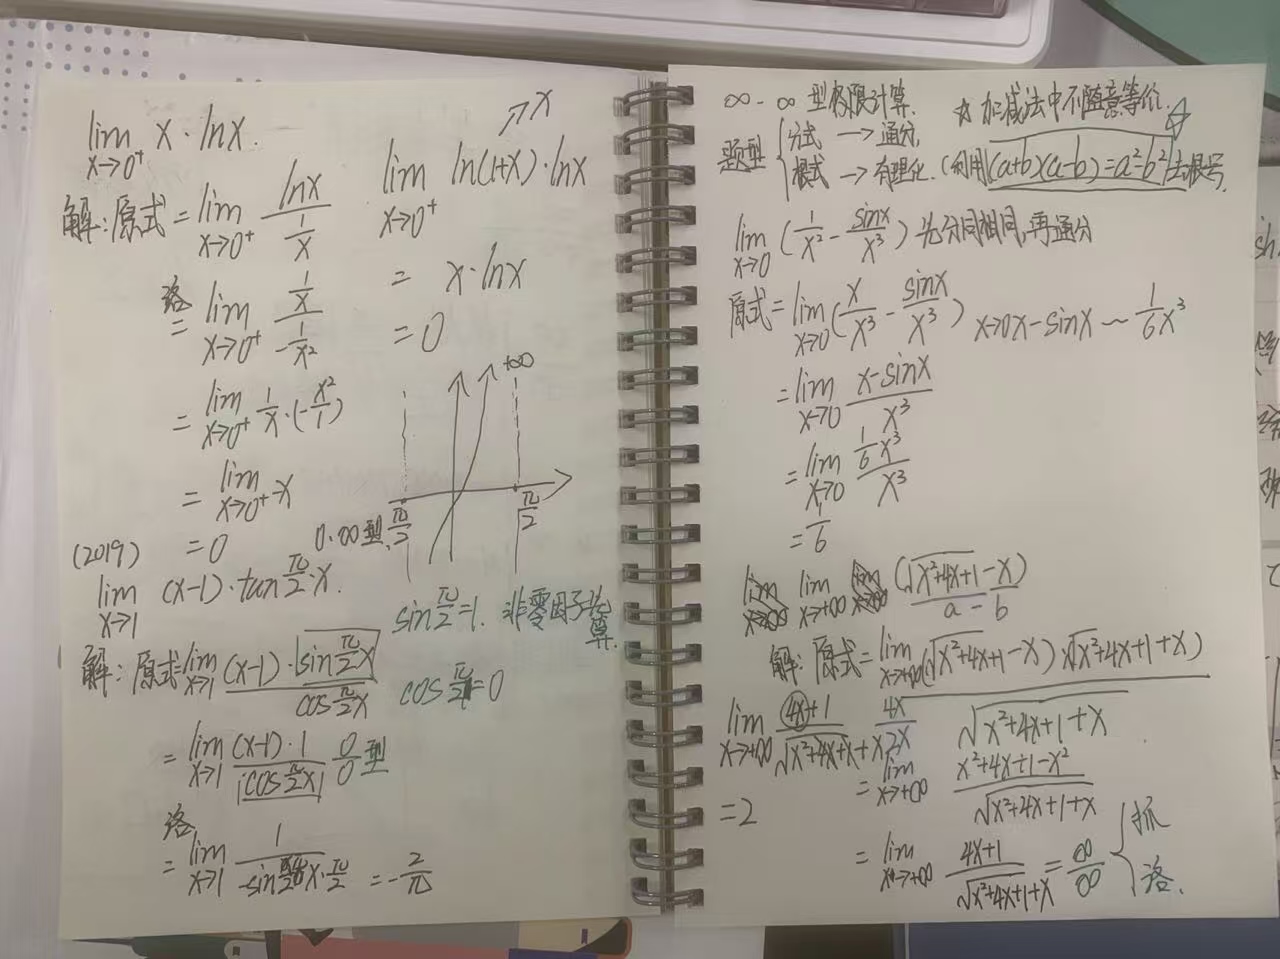 lim x→0⁺ x·lnx.
解:原式=lim x→0⁺ lnx/(1/x)
洛= lim x→0⁺ (1/x)/(-1/x²)
=lim x→0⁺ 1/x·(-x²/1)
=lim x→0⁺ -x
=0
↗x
lim x→0⁺ ln(1+x)·lnx
= x·lnx
=0
+∞
π/2
π/2
0·∞型.
(2019)
lim x→1 (x-1)·tan π/2·x.
sin π/2=1. 非零因子
算.
解:原式=lim x→1 (x-1)·sin π/2 x / cos π/2 x
cos π/2=0
=lim x→1 (x-1)·1 / cos π/2 x 0/0型
洛= lim x→1 1/(-sin π/2 x·π/2) =-2/π
∞-∞型极限计算. ☆加减法中不随意等价.
题型{分式→通分
根式→有理化.(利用(a+b)(a-b)=a²-b²)去根号.
lim x→0 (1/x²-sinx/x³) 先分母相同,再通分
原式=lim x→0 (x/x³-sinx/x³) x→0 x-sinx~1/6x³
=lim x→0 (x-sinx)/x³
=lim x→0 (1/6x³)/x³
=1/6
lim x→+∞ (√x²+4x+1-x)
a-b
解:原式=lim x→+∞ (√x²+4x+1-x)(√x²+4x+1+x)
√x²+4x+1+x
lim x→+∞ (4x+1)/(√x²+4x+x+x) 4x/2x
=2
=lim x→+∞ (x²+4x+1-x²)/(√x²+4x+1+x)
=lim x→+∞ (4x+1)/(√x²+4x+1+x)=∞/∞{抓
洛.